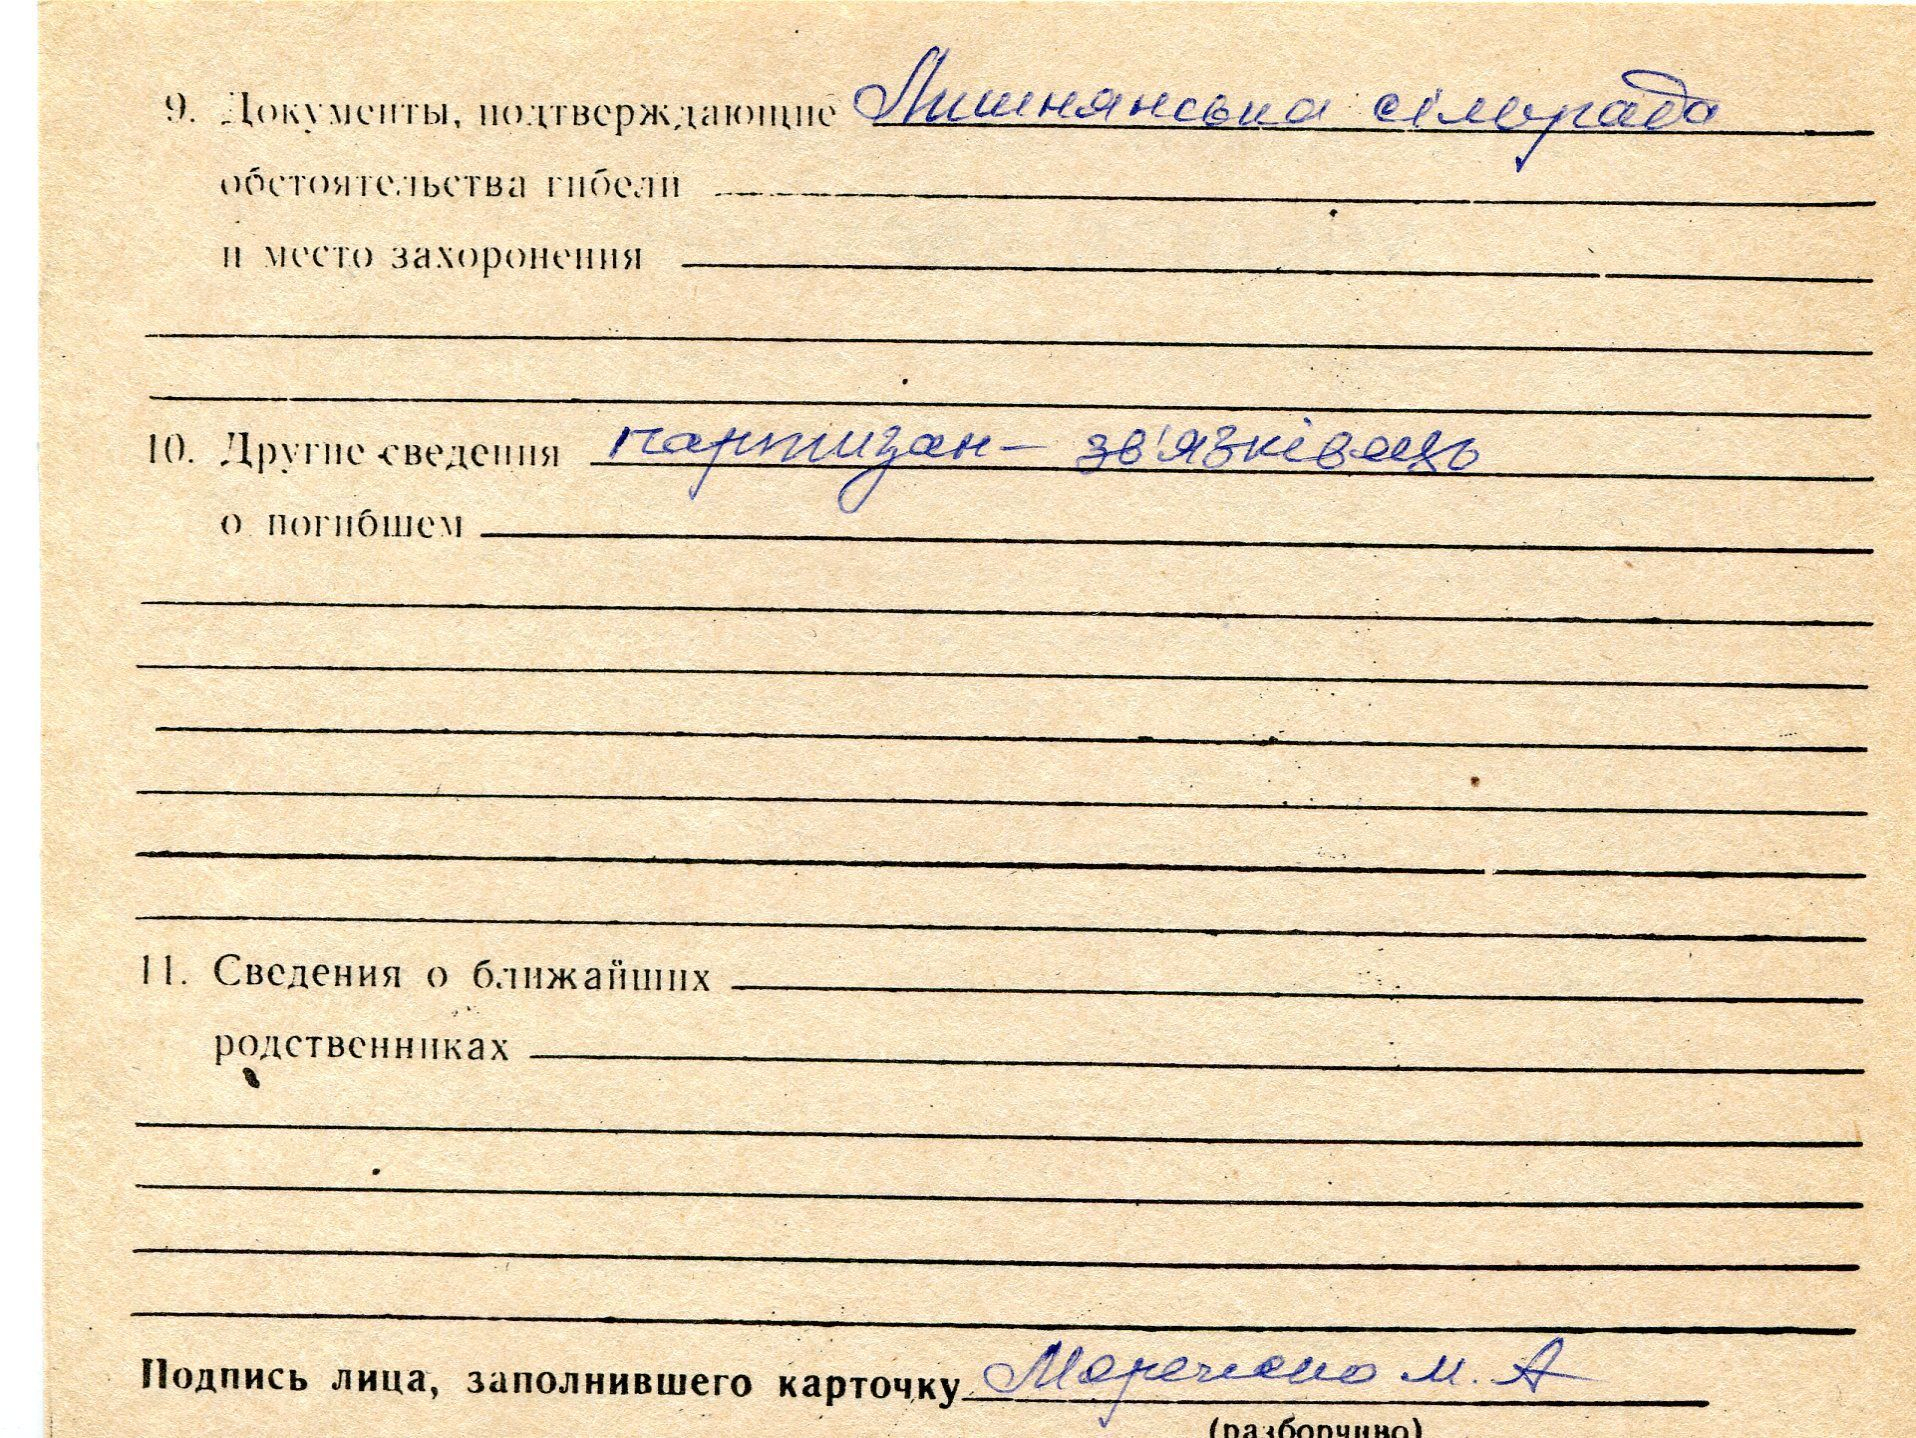 9. Документы, подтверждающие Лишнянська сільрада
обстоятельства гибели
и место захоронения
10. Другие сведения партизан - зв'язківець
о погибшем
11. Сведения о ближайших
родственниках
Подпись лица, заполнившего карточку М. А
(разборчиво)